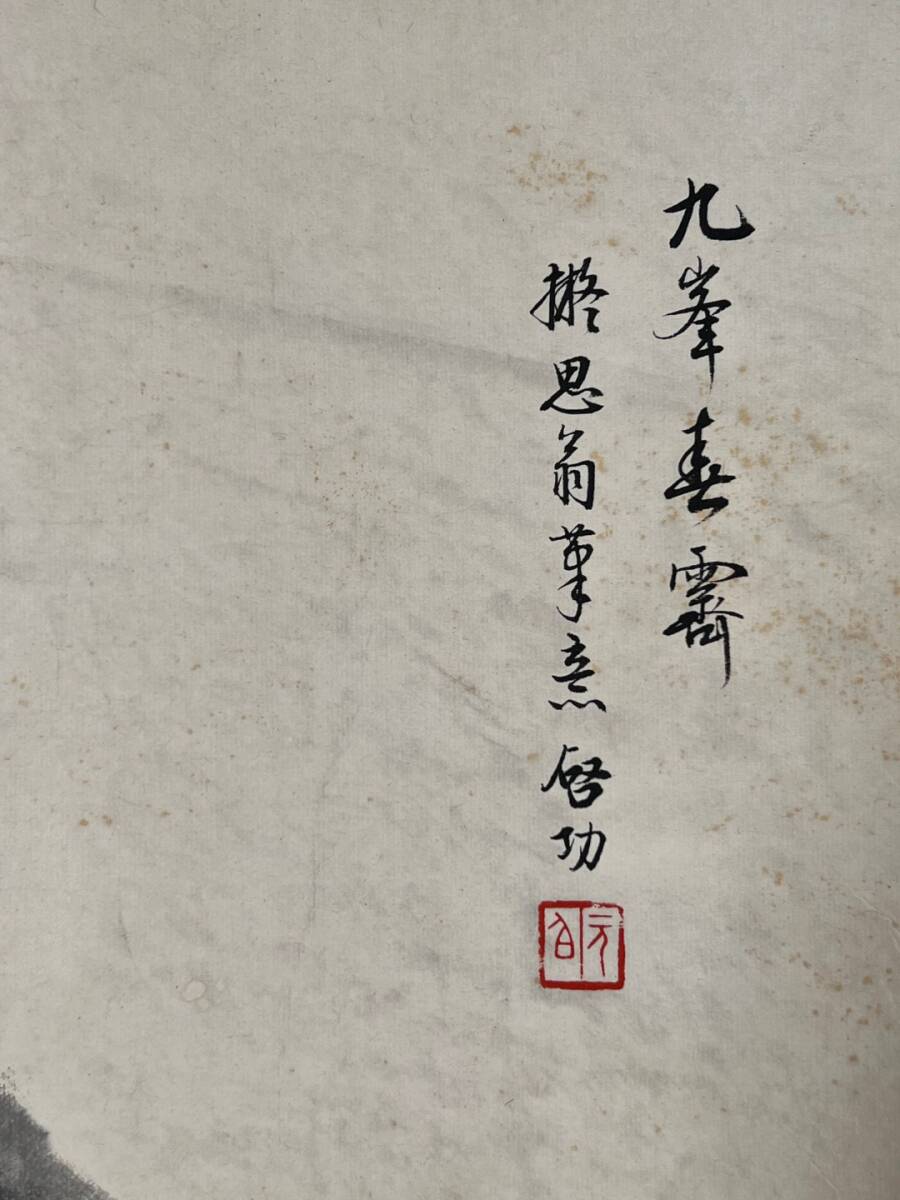 九峯春霽
擬思翁筆意 啓功
元白